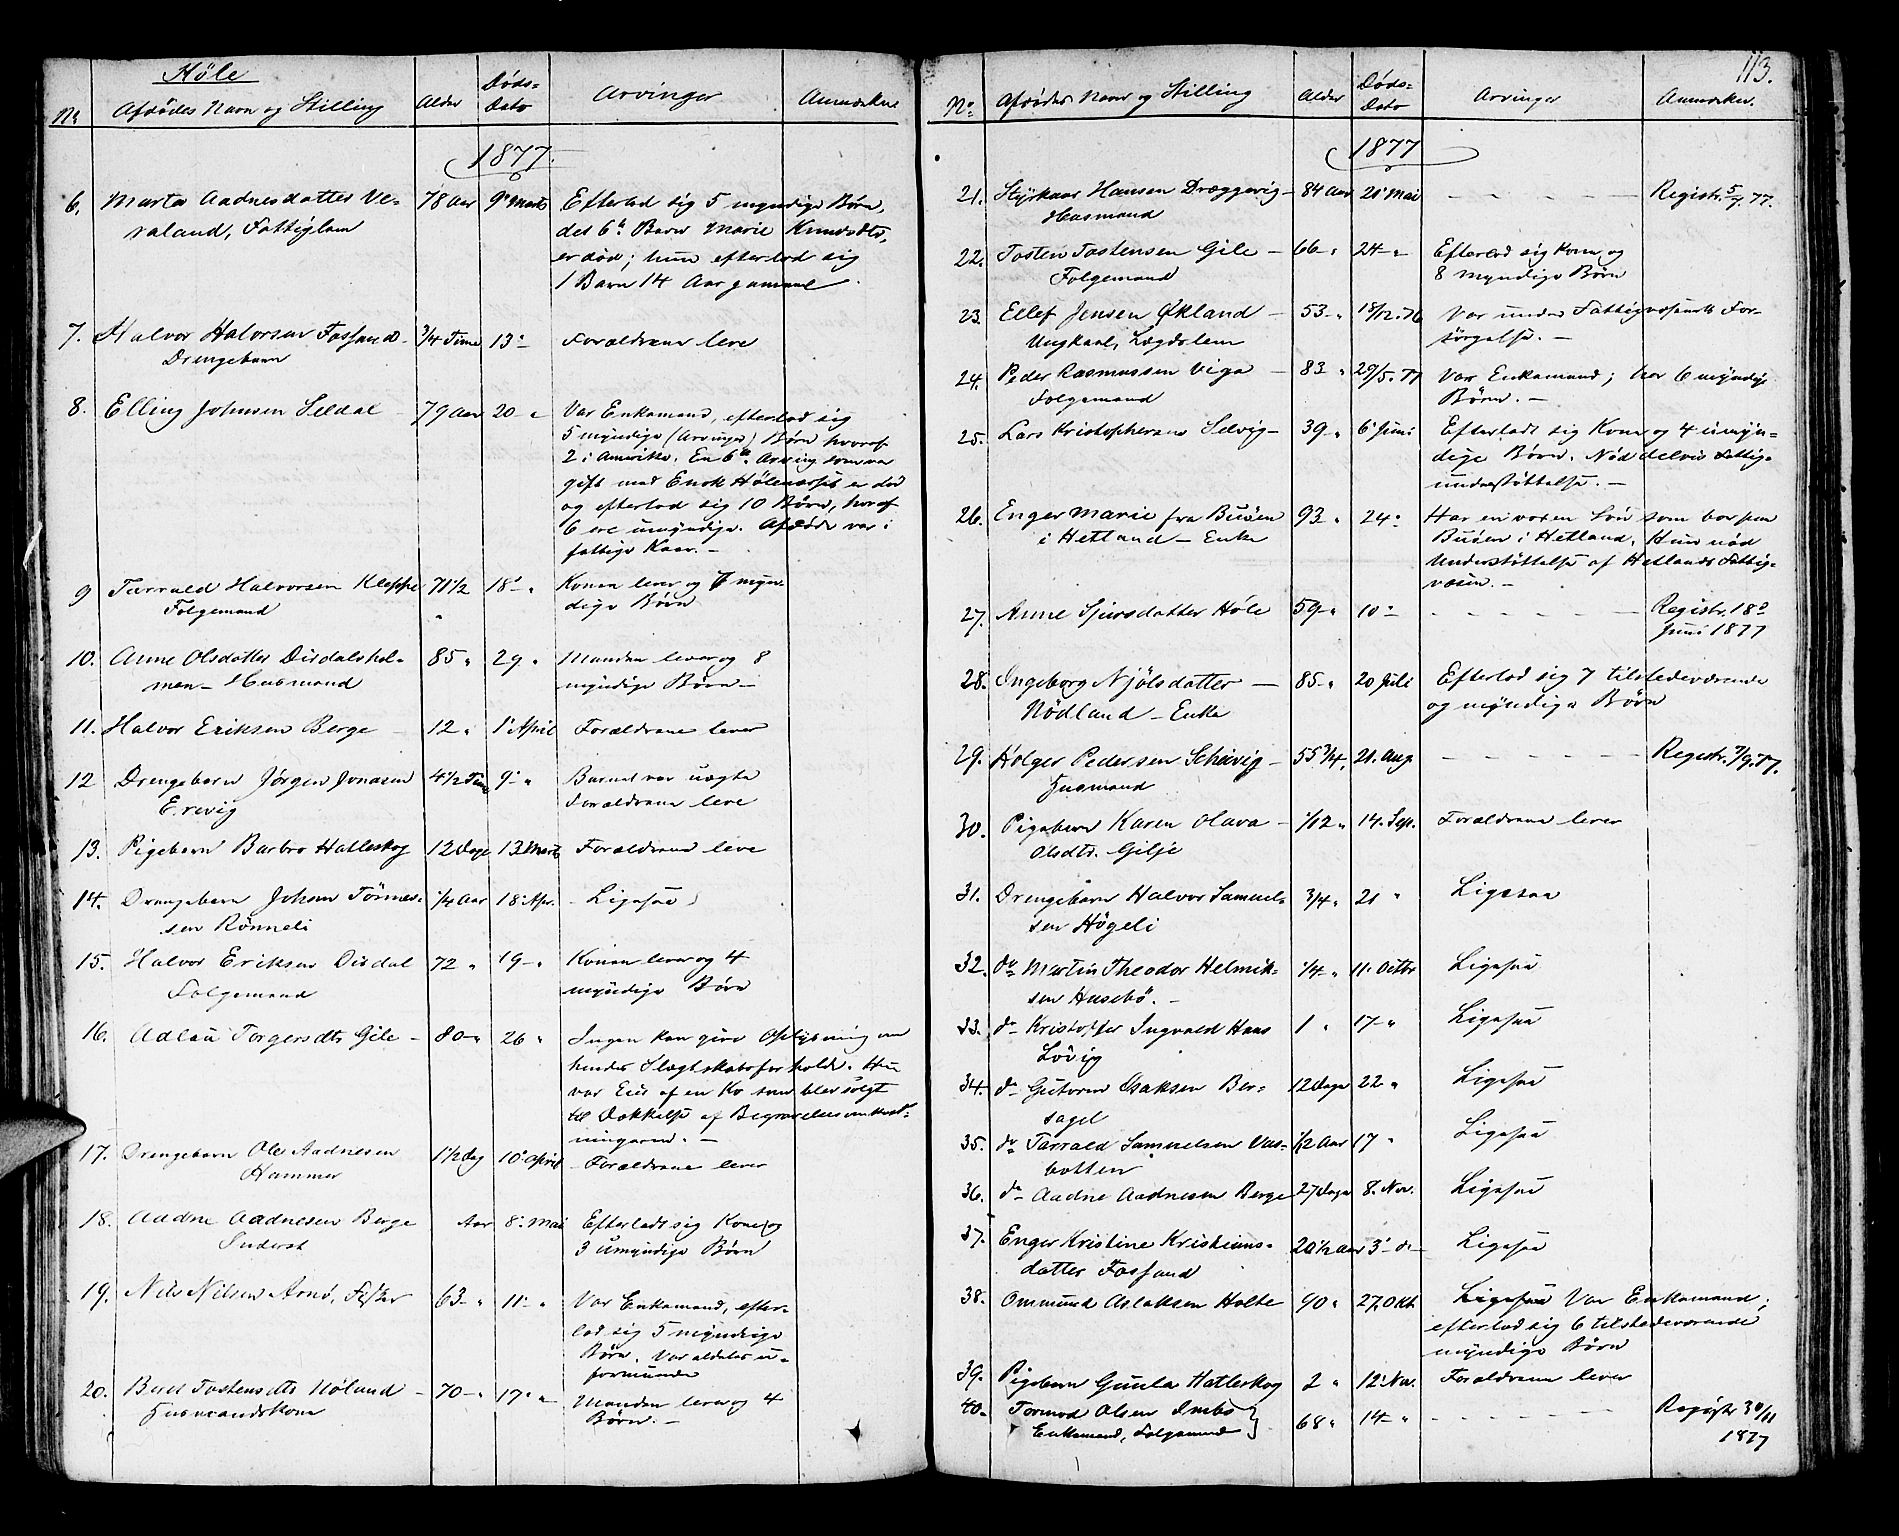 Høle
No Afdødes Navn og Stilling Alder Døds-Dato Arvinger Anmærkn
1877.
6. Marta Aadnesdatter Ve- 78 Aar 9de Marts Efterlod sig 5 myndige Børn,
raland, Fattiglem det 6te Barn Marie Knudsdtr,
er død; hun efterlod sig
1 Barn 14 Aar gammel.
7. Halvor Halvorsen Fossand 3/4 Time 13- Forældrene leve
Drengebarn
8. Elling Johnsen Seldal 79 Aar 20 - " Var Enkemand, efterlod sig
5 myndige (Arvinger) Børn hvoraf
2 i Amerika. En 6te Arving som var
gift med Enok Hølen er død
og efterlod sig 10 Børn, hvoraf
6 ere umyndige. Afdøde var i
fattige Kaar. -
9 Tarrald Halvorsen Kleppe 71 1/2 " 18- " Konen lever og 7 myn-
Folgemand dige Børn
10. Anne Olsdatter Dirdalshol- 85 " 29 " Manden lever og 8
men - Husmand myndige Børn -
11. Halvor Eriksen Berge 12 " 1ste April Forældrene lever
12 Drengebarn Jørgen Jonasen 4 1/2 Time 9- " Barnet var uægte
Erevig Forældrene leve
13. Pigebarn Barbro Hatleskog 12 Dage 13 Marts Forældrene leve
14. Drengebarn Johan Tønnes- 1/4 Aar 18 Apr. - Ligesaa
sen Rønneli
15. Halvor Eriksen Dirdal 72 " 19 - " Konen lever og 4
Folgemand myndige Børn
16. Adlau Torgersdtr Gile - 80 - " 26 " Ingen kan give Oplysning om
hendes Slægtskabsforholde. Hun
var Eier af en Ko som blev solgt
til Dækkelse af Begravelsesomkost-
ningerne. -
17. Drengebarn Ole Aadnesen 1 1/2 Dag 10 April - Forældrene lever
Hammer
18. Aadne Aadnesen Berge Aar 8 Mai Efterlod sig Kone og
Inderst 3 umyndige Børn
19. Nils Nilsen Arnø, Fisker 63 - " 11 - " Var Enkemand, efter-
lod sig 5 myndige
Børn. Var aldeles u-
formuende
20. Beret Tostensdtr Høland - 70 - " 17 " " Manden lever og 4
Husmandskone Børn. -
113.
No. Afdødes Navn og Stilling Alder Døds-Dato Arvinger Anmærkn.
1877
21. Styrkaar Hansen Dræggevig - 84 Aar 21 Mai - - - - - - Registr. 5/7 77.
Husmand
22. Tosten Tostensen Gile - 66 - " 24 - " Efterlod sig Kone og
Folgemand 8 myndige Børn
23. Ellef Jensen Økland - 53 - " 18/12. 76 Var under Fattigvæsenets For-
Ungkarl, Lægdslem sørgelse. -
24. Peder Rasmussen Viga - 83 " 29/5. 77 Var Enkemand; har 6 myndige
Folgemand Børn. -
25. Lars Kristophersen Selvig - 39 - " 6 Juni Efterlod sig Kone og 4 umyn-
dige Børn. Nød delvis Fattig-
understøttelse. -
26. Enger Marie fra Buøen 93 " 24 - Har en voxen Søn som bor paa
i Hetland - Enke Buøen i Hetland. Hun nød
Understøttelse af Hetlands Fattig-
væsen. -
27. Anne Sjursdatter Høle 59 - " 10 - - - - - - - Registr. 18de
Juni 1877
28. Ingeborg Njølsdatter - 85 - " 20 Juli Efterlod sig 7 tilstedeværende
Nødland - Enke og myndige Børn
29. Holger Pedersen Scheivig - 55 3/4. 21. Aug. - - - - - - Registr. 7/9. 77.
Husmand
30. Pigebarn Karen Olava - 1/12 " 14. Sep. Forældrene lever
Olsdtr. Gilje
31. Drengebarn Halvor Samuel- 3/4 " 21 " Ligesaa
sen Høgeli
32. do Martin Theodor Helmik- 1/4 " 11. Octbr Ligesaa
sen Husebø. -
33. do Kristoffer Ingvald Hans 1 " 17 - " Ligesaa
Løvig
34. do Gutorm Isaksen Ber- 12 Dage 22 " Ligesaa
sagel
35. do Tarrald Samuelsen Vas- 1/2 Aar 17 " Ligesaa
botten
36. do Aadne Aadnesen Berge 27 Dage 8. Nov. Ligesaa
37. Enger Kristine Kristians- 20 1/2 Aar 3 - do - Ligesaa
datter Fossand
38. Ommund Aslaksen Holte 90 " 27. Okt Ligesaa Var Enkemand;
efterlod sig 6 tilstedeværende
myndige Børn
39. Pigebarn Gunla Hatleskog 2 " 12 Nov. Forældrene lever
40. Tormod Olsen Imbs 68 " 14 - " - - - - - - Registr 30/11
Enkemand, Folgemand 1877